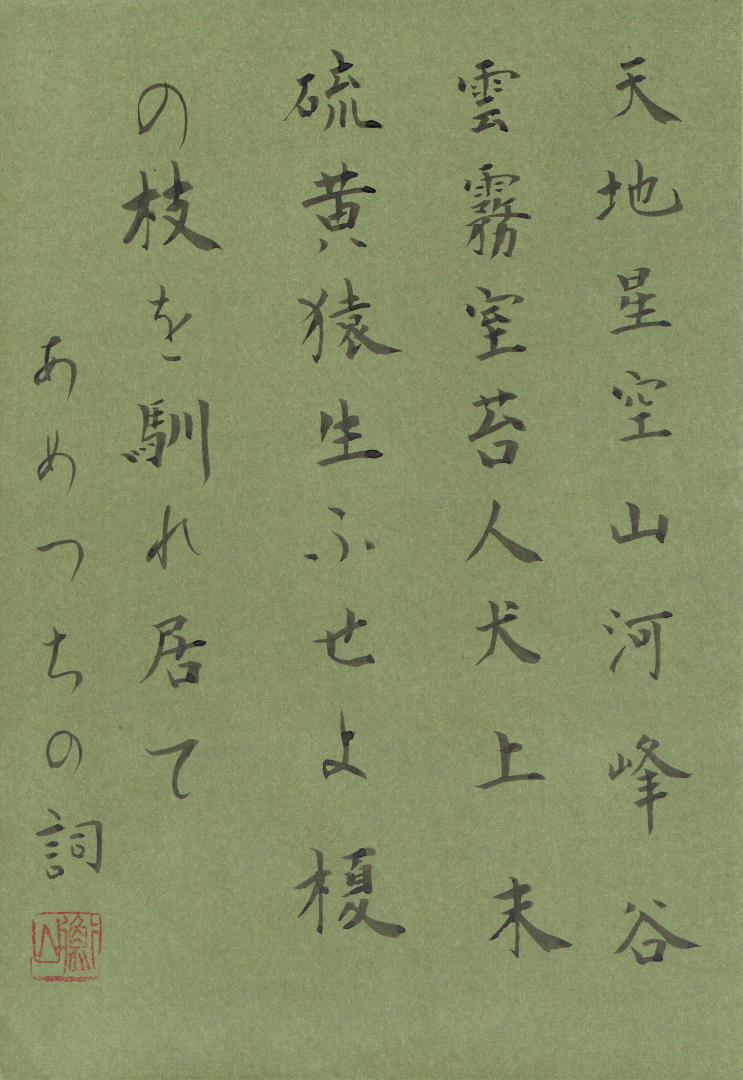 天地星空山河峰谷
雲霧室苔人犬上末
硫黄猿生ふせよ榎
の枝を馴れ居て
あめつちの詞